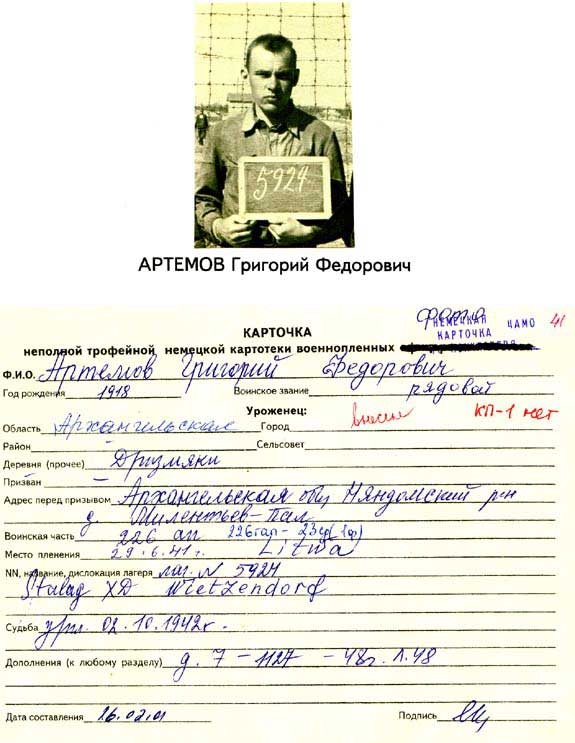 5924
АРТЕМОВ Григорий Федорович
фото
НЕМЕЦКАЯ ЦАМО 41
КАРТОЧКА
КАРТОЧКА
неполной трофейной немецкой картотеки военнопленных
Ф.И.О. Артемов Григорий Федорович
Год рождения 1918 Воинское звание рядовой
Уроженец: внесен КП-1 нет
Область Архангельская Город
Район Сельсовет
Деревня (прочее) Дризмяки
Призван
Адрес перед призывом Архангельская обл Няндомский р-н
д. Милентьев-Пал
Воинская часть 226 ап 226гап - 23сд
Место пленения 29.6.41г. Litwa
NN, название, дислокация лагеря лаг. N 5924
Stalag XD Wietzendorf
Судьба ум. 02.10.1942г.
Дополнения (к любому разделу) д. 7 - 1127 - 48г. л. 48
Дата составления 26.02.01 Подпись